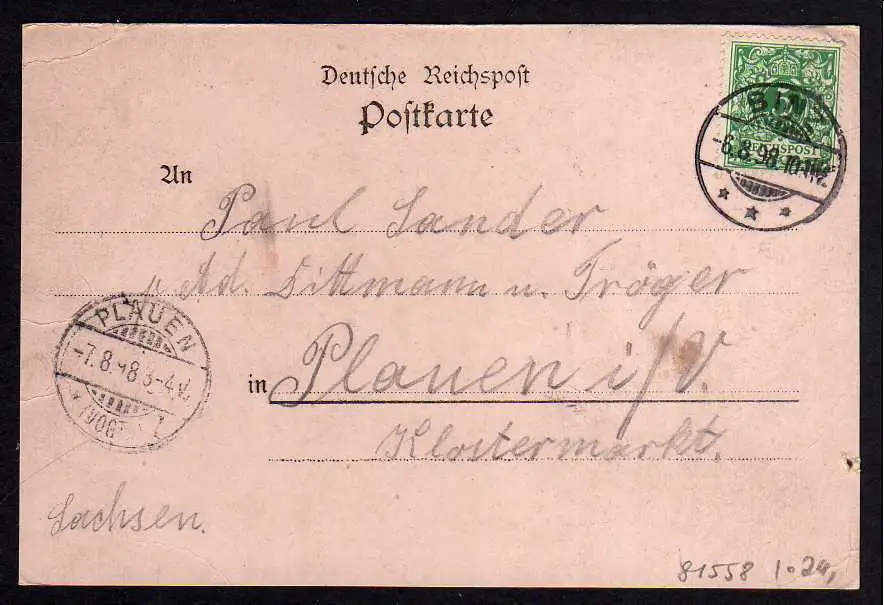 Deutsche Reichspost
Postkarte
REICHSPOST
-6.8.98.10-11V.
An
Paul Sander
Ad. Dittmann u. Tröger
PLAUEN
-7.8.98 3-4V.
in Plauen i/V.
Klostermarkt.
Sachsen.
81558